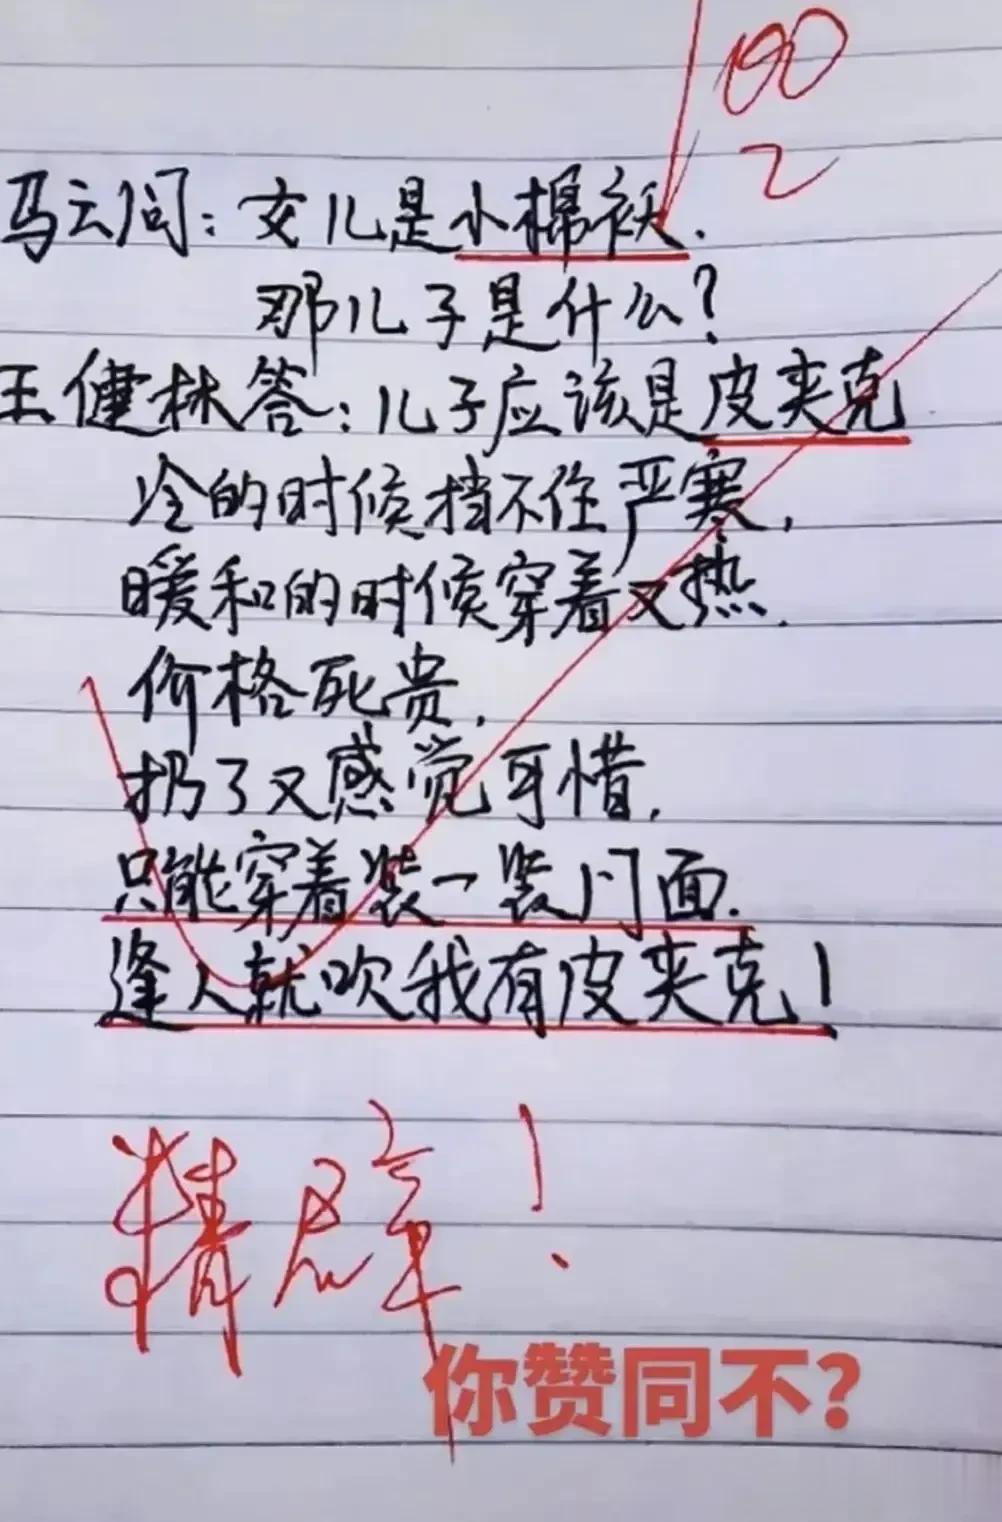 100
2
马云问：女儿是小棉袄．
那儿子是什么？
王健林答：儿子应该是皮夹克
冷的时候挡不住严寒，
暖和的时候穿着又热．
价格死贵，
扔了又感觉可惜，
只能穿着装一装门面．
逢人就吹我有皮夹克！
精辟！
你赞同不？